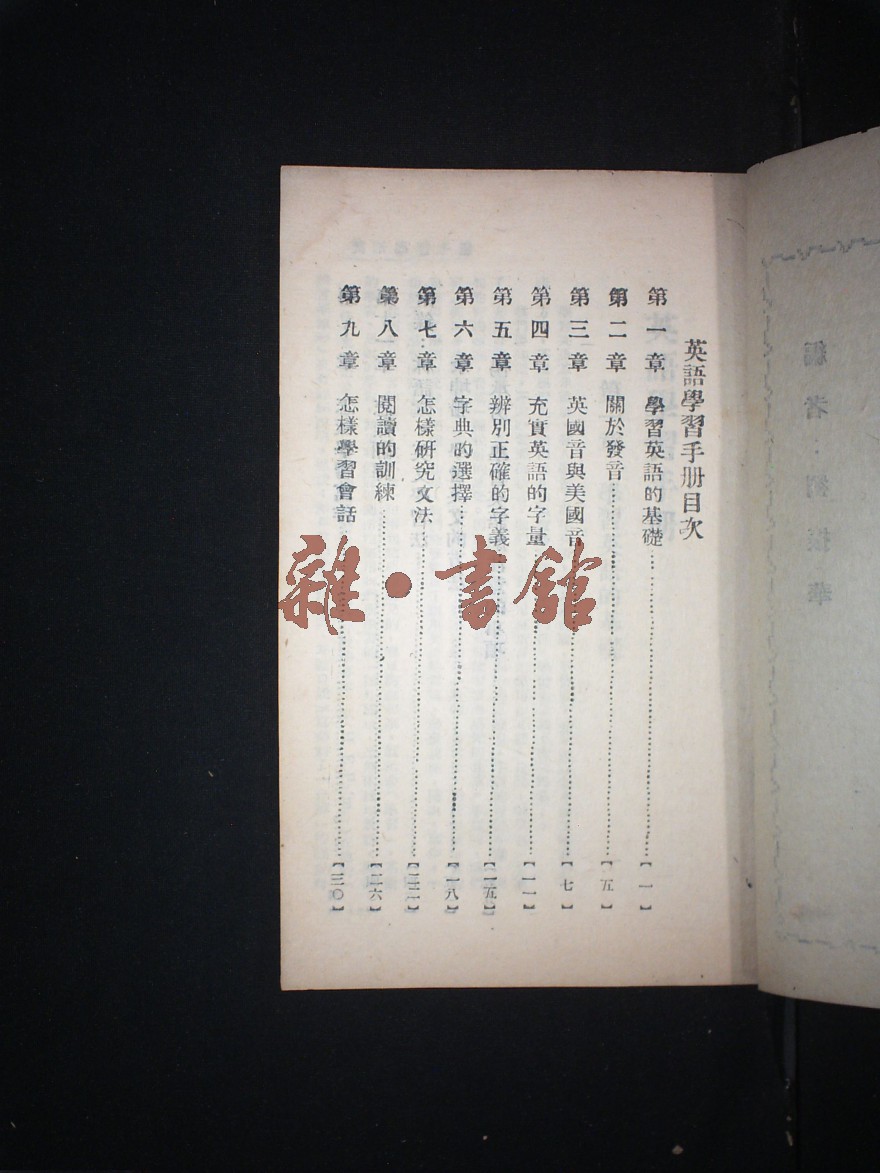 英語學習手册目次
第一章 學習英語的基礎……………【一】
第二章 關於發音……………【五】
第三章 英國音與美國音……………【七】
第四章 充實英語的字量……………【一一】
第五章 辨別正確的字義……………【一五】
第六章 字典的選擇……………【一八】
第七章 怎樣研究文法……………【二二】
第八章 閱讀的訓練……………【二六】
第九章 怎樣學習會話……………【三〇】
雜·書館
編者·劉振華